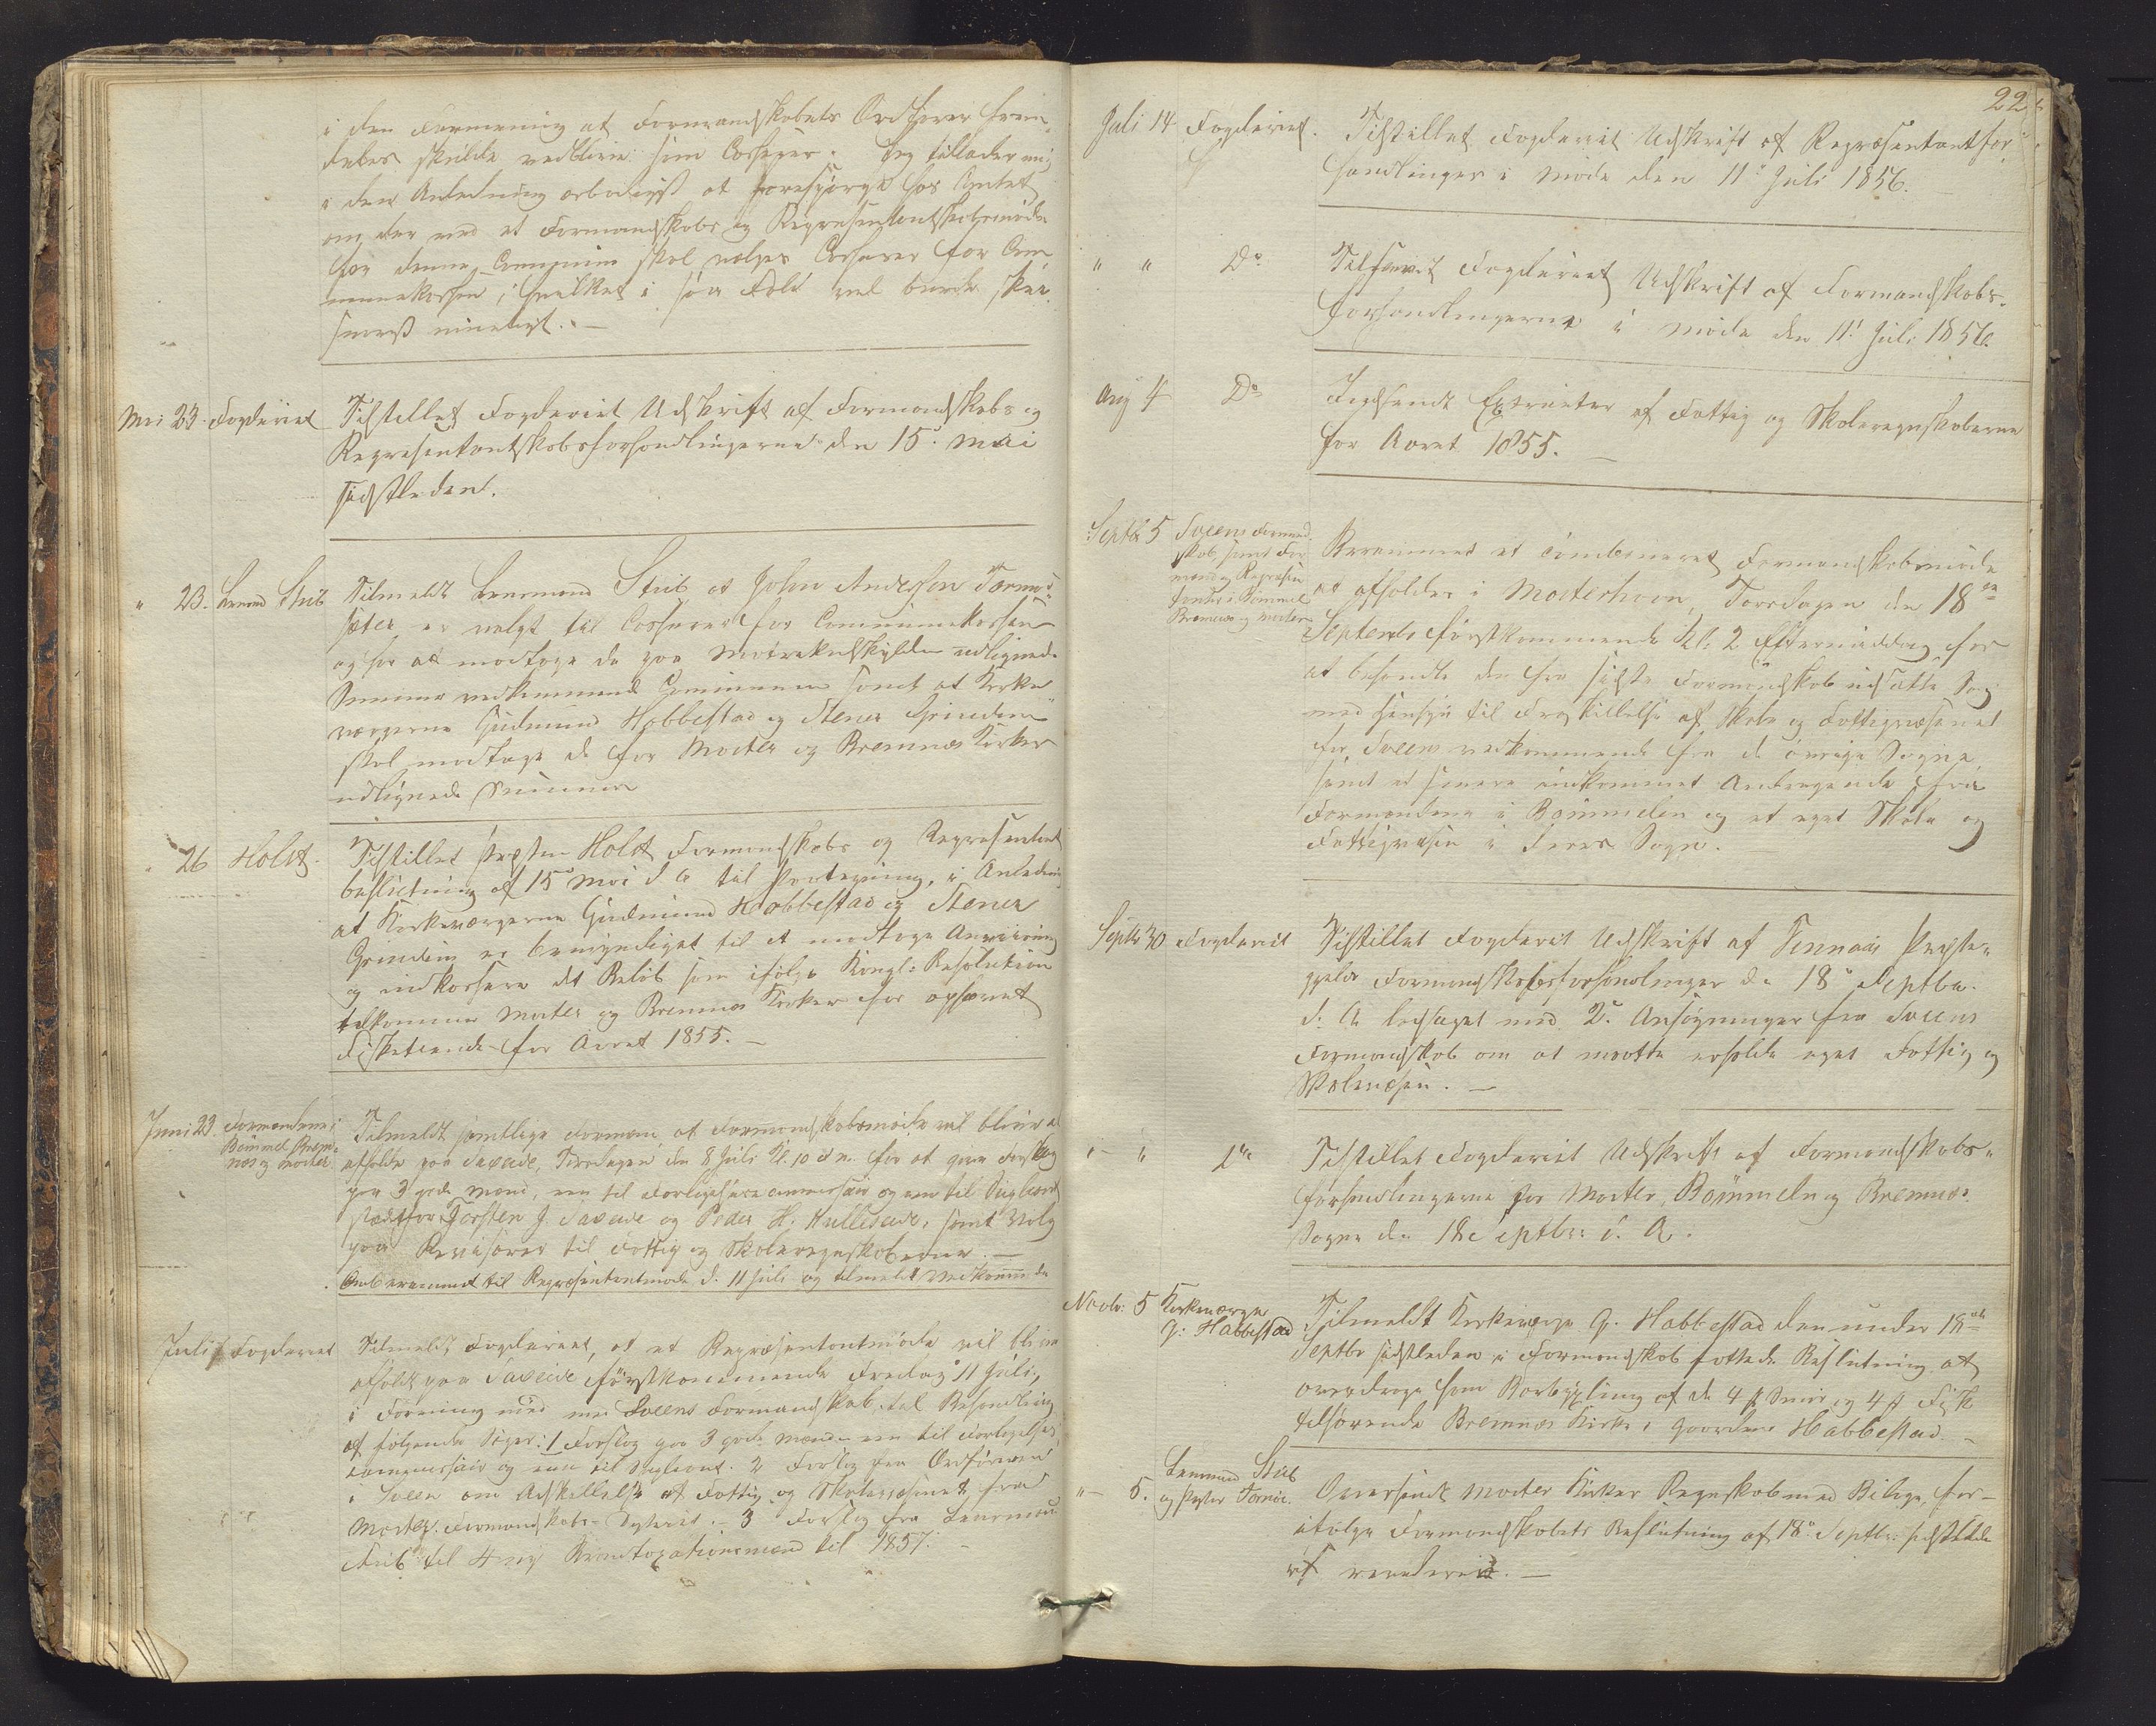 i den Formening at Formandskabets Ordfører frem-
deles skulde vedblive som Casserer. Jeg tillader mig
i den Anledning ærbødigst at forespørge hos Amtet
om der ved et Formandskabs og Repræsentantskabsmøde
for denne Commune skal vælges Casserer for Com-
munekassen, hvilket i saa Fald vel burde skee
snarest mueligt. —
Mai 23. Fogderiet Tilstillet Fogderiet Udskrift af Formandskabs og
Repræsentantskabsforhandlingerne den 15de Mai
sidstleden.
" 23. Lensmd Stub Tilmeldt Lensmand Stub, at John Anderssen Tormo-
sæter er valgt til Casserer for Communekassen
og for at modtage de paa Matrikulskylden udlignede
Summer vedkommende Communen samt at Kirke-
værgerne Gudmund Habbestad og Stener Grinden
skal modtage de for Moster og Bremnæs Kirker
udlignede Summer
" 26 Holst. Tilstillet Præsten Holst Formandskabs og Repræsentant
beslutning af 15de Mai d. A. til Paategning, i Anledning
at Kirkeværgerne Gudmund Habbestad og Stener
Grinden er bemyndiget til at modtage Anviisning
og indkassere det Beløb som ifølge Kongl: Resolution
tilkommer Moster og Bremnes Kirker for ophævet
Fisketiende for Aaret 1855. —
Juni 23. Formændene i
Bømmel, Brem-
næs og Moster Tilmeldt samtlige Formænd, at Formandskabsmøde vil blive at
afholde paa Søreide, Tirsdagen den 8 Juli Kl. 10 F. m. for at gjøre Forslag
paa 3 gode Mænd, een til Forligelsescommissair og een til Suppleant
istedetfor Torsten J. Søreide og Peder H. Hullesæde, samt Valg
paa Revisorer til Fattig og Skoleregnskaberne. —
Anberammet til Repræsentantmøde d. 11 Juli og tilmeldt Vedkommende
Juli 7 Fogderiet Tilmeldt Fogderiet, at et Repræsentantmøde vil blive
afholdt paa Søreide førstkommende Fredag 11 Juli,
i Forening med Sveens Formandskab, til Behandling
af følgende Sager: 1 Forslag paa 3 gode Mænd een til Forligelses-
commissair og een til Suppleant. 2 Forslag fra Ordføreren
i Sveen om Adskillelse af Fattig og Skolevæsenet fra
Moster Formandskabs-District. — 3 Forslag fra Lensmand
Stub til 4 nye Brandtaxationsmænd til 1857. —
22
Juli 14 Fogderiet. Tilstillet Fogderiet Udskrift af Repræsentantfor-
handlinger i Møde den 11te Juli 1856.
" " Do Tilsendt Fogderiet Udskrift af Formandskabs-
forhandlingerne i Møde den 11te Juli 1856.
Aug 4 Do Indsendt Extracter af Fattig og Skoleregnskaberne
for Aaret 1855. —
Septbr 5 Sveens Formand-
skab, samt For-
mænd og Repræsen-
tanter i Bømmel
Bremnæs og Moster Berammet et combineret Formandskabsmøde
at afholdes i Mosterhavn, Torsdagen den 18de
Septembr førstkommende Kl. 2 Eftermiddag for
at behandle den fra sidste Formandskab udsatte Sag
med Hensyn til Fraskillelse af Skole og Fattigvæsenet
for Sveens vedkommende fra de øvrige Sogne,
samt et senere indkommet Andragende fra
Formændene i Bømmelen og et eget Skole og
Fattigvæsen i deres Sogn.
Septbr 30 Fogderiet Tilstillet Fogderiet Udskrift af Finnaas Præste-
gjelds Formandskabsforhandlinger de 18de Septbr.
d. A. ledsaget med 2de Ansøgninger fra Sveens
Formandskab om at maatte erholde eget Fattig og
Skolevæsen. —
" — " Do Tilstillet Fogderiet Udskrift af Formandskabs-
forhandlingerne for Moster, Bømmeln og Bremnæs
Sogne de 18 Septbr. d. A.
Novbr: 5 Kirkeværge
G. Habbestad Tilmeldt Kirkeværge G. Habbestad den under 18de
Septbr sidstleden i Formandskab fattede Beslutning at
overdrage ham Bortbyxling af de 4 ℔ Smør og 4 ℔ Fisk
tilhørende Bremnæs Kirke i Gaarden Habbestad. —
" — 5. Lensmand Stub
og Præsten Oversendt Moster Kirkes Regnskab med Bilage, for-
ifølge Formandskabets Beslutning af 18de Septbr: sidstleden
at revideres. —